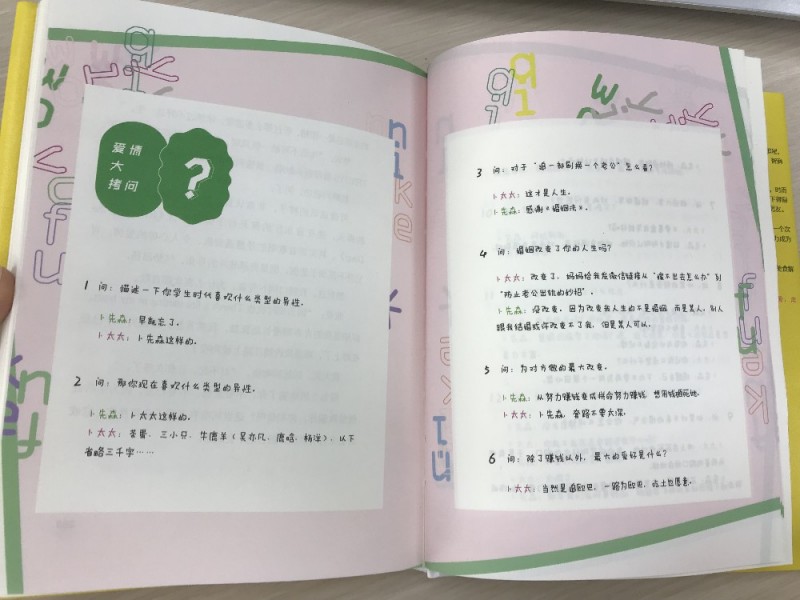 爱情
大
拷问
?
1 问：描述一下你学生时代喜欢什么类型的异性。
卜先森：早就忘了。
卜太太：卜先森这样的。
2 问：那你现在喜欢什么类型的异性。
卜先森：卜太太这样的。
卜太太：李晋、三小只、牛鹿羊（吴亦凡、鹿晗、杨洋）、以下
省略三千字……
3 问：对于“追一部剧换一个老公”怎么看？
卜太太：这才是人生。
卜先森：感谢《婚姻法》。
4 问：婚姻改变了你的人生吗？
卜太太：改变了，妈妈给我发微信链接从“嫁不出去怎么办”到
“防止老公出轨的妙招”。
卜先森：没改变。因为改变我人生的不是婚姻，而是某人，别人
跟我结婚或许改变不了我，但是某人可以。
5 问：为对方做的最大改变。
卜先森：从努力赚钱变成拼命努力赚钱，想用钱砸死她。
卜太太：卜先森，套路不要太深。
6 问：除了赚钱以外，最大的爱好是什么？
卜太太：当然是追欧巴，一路为欧巴，吃土也愿意。